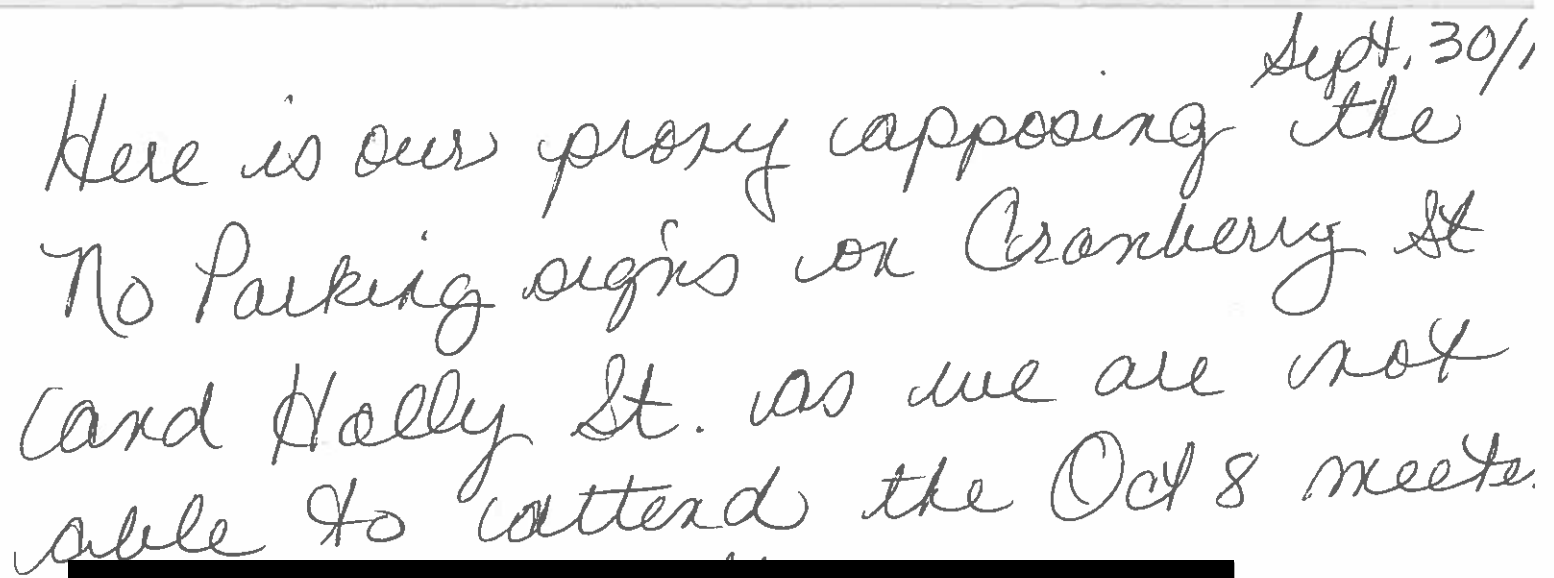 Sept. 30/1
Here is our proxy apposing the
No Parking signs on Cranberry St
and Holly St. as we are not
able to attend the Oct 8 meet